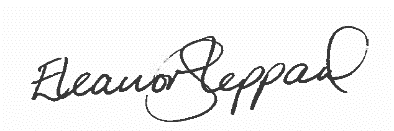 Eleanor Sheppard